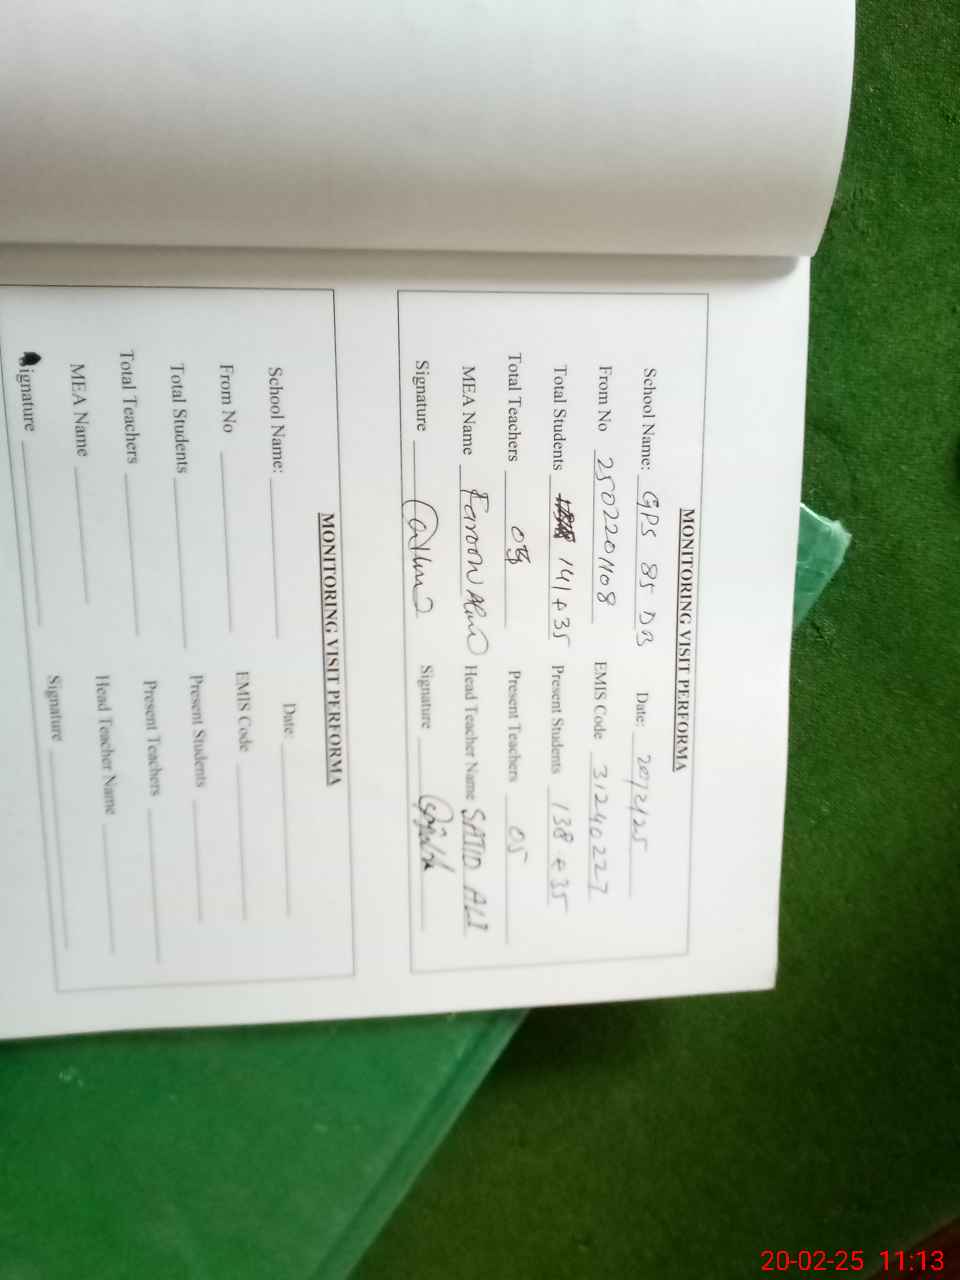 MONITORING VISIT PERFORMA
School Name: GPS 85 DB Date: 20/2/25
From No 2502201108 EMIS Code 31240227
Total Students 141+35 Present Students 138+35
Total Teachers Present Teachers 05
MEA Name Head Teacher Name SAJID ALI
Signature Signature
MONITORING VISIT PERFORMA
School Name: Date:
From No EMIS Code
Total Students Present Students
Total Teachers Present Teachers
MEA Name Head Teacher Name
Signature Signature
20-02-25 11:13